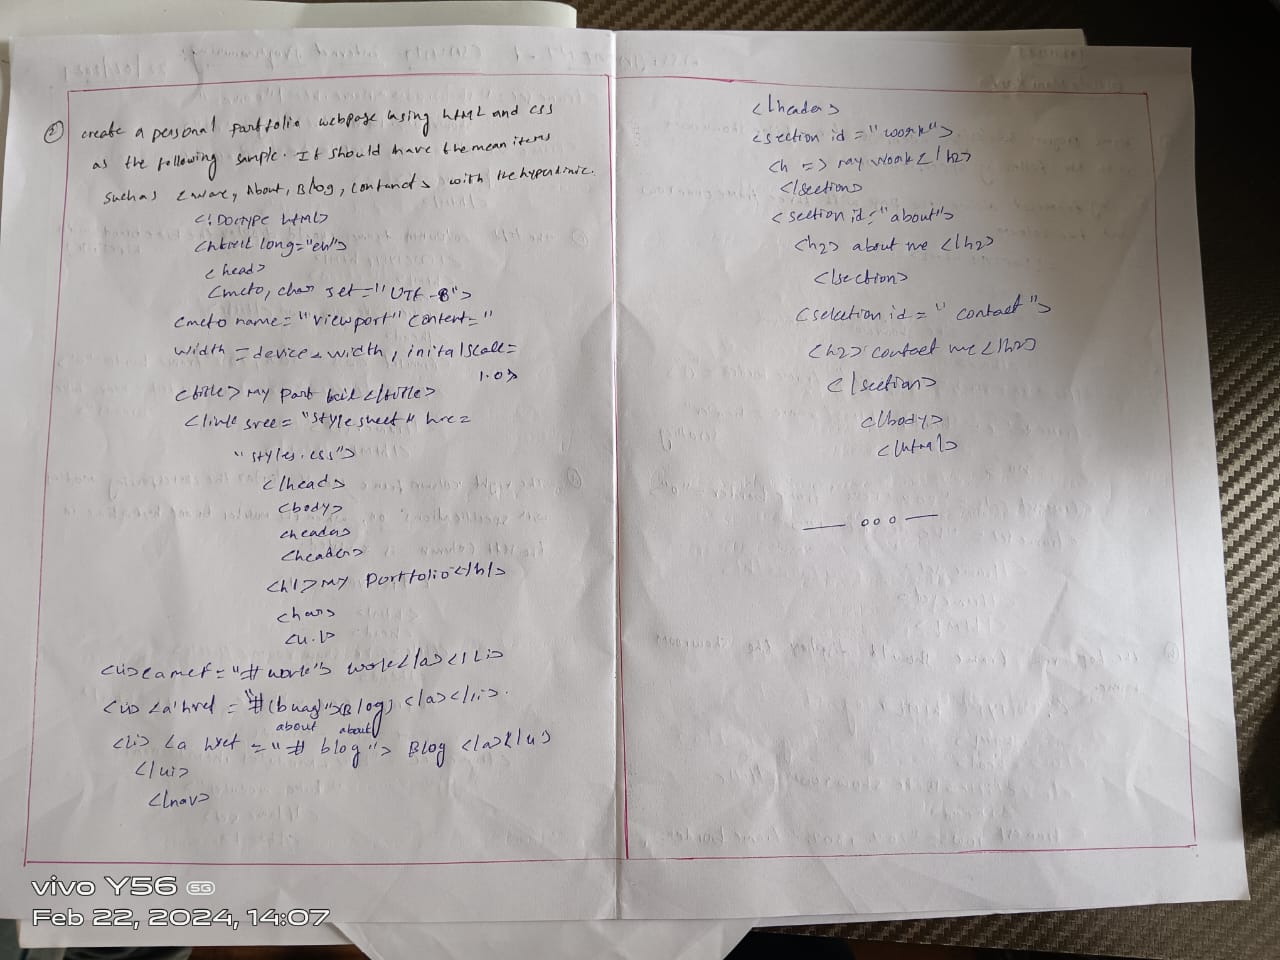 ② create a personal portfolio webpage using HTML and CSS
as the following sample. It should have the mean items
such as , About, Blog, with the
<!Doctype html>
long="en">
<head>
<meto, char set="UTF-8">
<meto name="viewport" content="
width = device width, inital scale=
1.0>
<title> My </title>
"stylesheet"
"styles.css">
</head>
<body>
<header>
<header>
<h1> My Portfolio </h1>
<u.l>
"# work"> work </a></li>
<a href = "# Blog) </a></li>.
about about
<li> <a href = "# blog"> Blog </a>
</ul>
</nav>
</header>
<section id = "work">
<h => my work </h2>
</section>
<section id="about">
<h2> about me </h2>
</section>
<selection id = " contact ">
<h2> contact me </h2>
</section>
</body>
</html>
— o o o —
vivo Y56 5G
Feb 22, 2024, 14:07